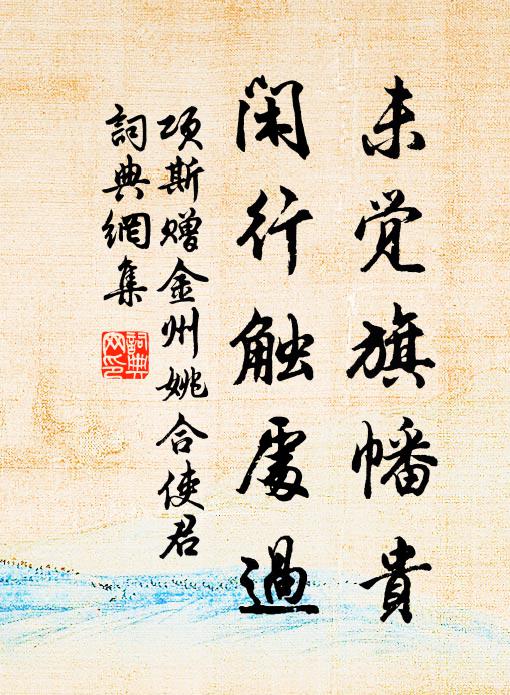 未觉旗幡貴
闲行触處過
项斯赠金州姚合使君
詞典網集
詞典